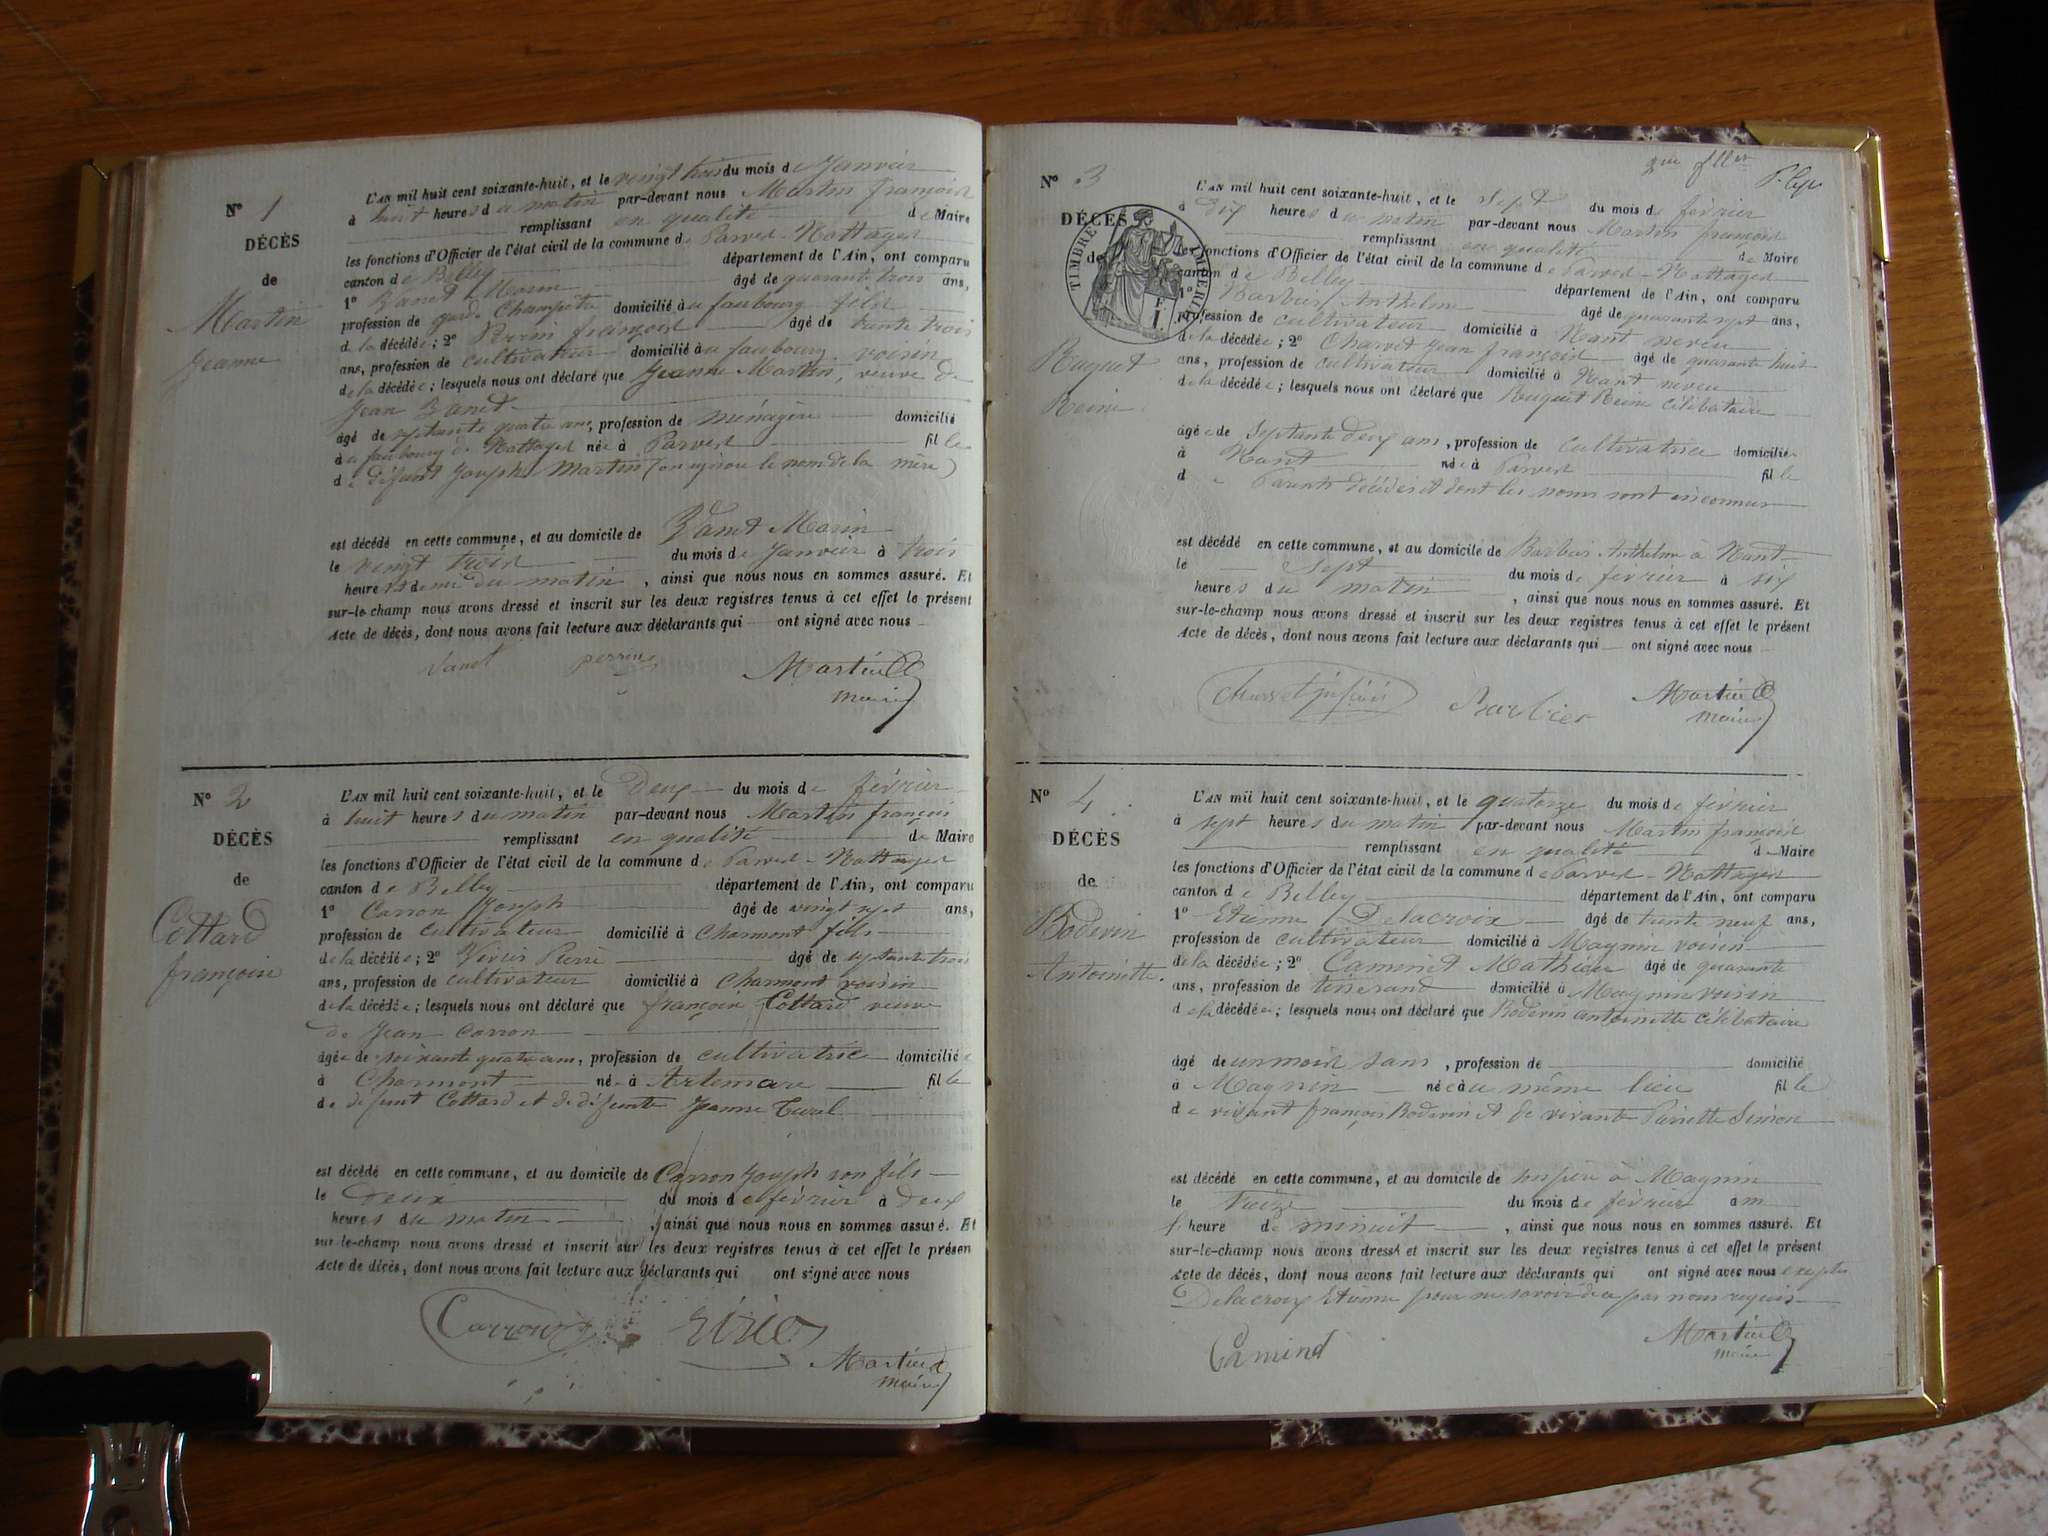 N° 1
DÉCÈS
de
Martin
Jeanne
L'AN mil huit cent soixante-huit, et le vingt trois du mois de Janvier
à huit heures du matin par-devant nous Martin françois
remplissant en qualité de Maire
les fonctions d'Officier de l'état civil de la commune de Parves-Nattages
canton de Belley département de l'Ain, ont comparu
1° Zanet Marin âgé de quarante trois ans,
profession de garde Champetre domicilié au faubourg fils
de la décédée; 2° Perrin françois âgé de trente trois
ans, profession de cultivateur domicilié au faubourg voisin
de la décédée; lesquels nous ont déclaré que Jeanne Martin, veuve de
Jean Zanet
âgé de septante quatre ans, profession de ménagère domicilié
au faubourg de Nattages née à Parves fille
de défunt Joseph Martin (on ignore le nom de la mère)
est décédé en cette commune, et au domicile de Zanet Marin
le vingt trois du mois de Janvier à trois
heures et demie du matin, ainsi que nous nous en sommes assuré. Et
sur-le-champ nous avons dressé et inscrit sur les deux registres tenus à cet effet le présent
Acte de décès, dont nous avons fait lecture aux déclarants qui ont signé avec nous
Zanet perrin Martin
maire
N° 2
DÉCÈS
de
Cottard
françoise
L'AN mil huit cent soixante-huit, et le Deux du mois de février
à huit heures du matin par-devant nous Martin françois
remplissant en qualité de Maire
les fonctions d'Officier de l'état civil de la commune de Parves-Nattages
canton de Belley département de l'Ain, ont comparu
1° Carron Joseph âgé de vingt sept ans,
profession de cultivateur domicilié à Charmont fils
de la décédée; 2° Pierre âgé de septante trois
ans, profession de cultivateur domicilié à Charmont voisin
de la décédée; lesquels nous ont déclaré que françoise Cottard veuve
de Jean Carron
âgée de soixante quatre ans, profession de cultivatrice domiciliée
à Charmont née à Artemare fille
de défunt Cottard et de défunte Jeanne
est décédé en cette commune, et au domicile de Carron Joseph son fils
le deux du mois de février à deux
heures du matin, ainsi que nous nous en sommes assuré. Et
sur-le-champ nous avons dressé et inscrit sur les deux registres tenus à cet effet le présen
Acte de décès, dont nous avons fait lecture aux déclarants qui ont signé avec nous
Carron
Martin
maire
N° 3
DÉCÈS
de
TIMBRE IMPÉRIAL
Ruguet
Reine
L'AN mil huit cent soixante-huit, et le sept du mois de février
à dix heures du matin par-devant nous Martin françois
remplissant en qualité de Maire
les fonctions d'Officier de l'état civil de la commune de Parves-Nattages
canton de Belley département de l'Ain, ont comparu
1° Barbier Anthelme âgé de quarante sept ans,
profession de cultivateur domicilié à Nant neveu
de la décédée; 2° Charvet Jean françois âgé de quarante huit
ans, profession de cultivateur domicilié à Nant neveu
de la décédée; lesquels nous ont déclaré que Ruguet Reine célibataire
âgée de septante deux ans, profession de cultivatrice domiciliée
à Nant née à Parves fille
de Parents décédés et dont les noms sont inconnus
est décédé en cette commune, et au domicile de Barbier Anthelme à Nant
le sept du mois de février à six
heures du matin, ainsi que nous nous en sommes assuré. Et
sur-le-champ nous avons dressé et inscrit sur les deux registres tenus à cet effet le présent
Acte de décès, dont nous avons fait lecture aux déclarants qui ont signé avec nous
Barbier Martin
maire
N° 4
DÉCÈS
de
Boderin
Antoinette.
L'AN mil huit cent soixante-huit, et le quatorze du mois de février
à sept heures du matin par-devant nous Martin françois
remplissant en qualité de Maire
les fonctions d'Officier de l'état civil de la commune de Parves-Nattages
canton de Belley département de l'Ain, ont comparu
1° Etienne Delacroix âgé de trente neuf ans,
profession de cultivateur domicilié à Magnin voisin
de la décédée; 2° Caminet Mathieu âgé de quarante
ans, profession de tisserand domicilié à Magnin voisin
de la décédée; lesquels nous ont déclaré que Boderin antoinette célibataire
âgé de un mois sans, profession de domicilié
à Magnin née au même lieu fille
de vivant françois Boderin et de vivante Pierrette Simon
est décédé en cette commune, et au domicile de son père à Magnin
le treize du mois de février a m
heure de minuit, ainsi que nous nous en sommes assuré. Et
sur-le-champ nous avons dressé et inscrit sur les deux registres tenus à cet effet le présent
Acte de décès, dont nous avons fait lecture aux déclarants qui ont signé avec nous excepté
Delacroix Etienne pour ne savoir de ce par nous requis
Caminet
Martin
maire